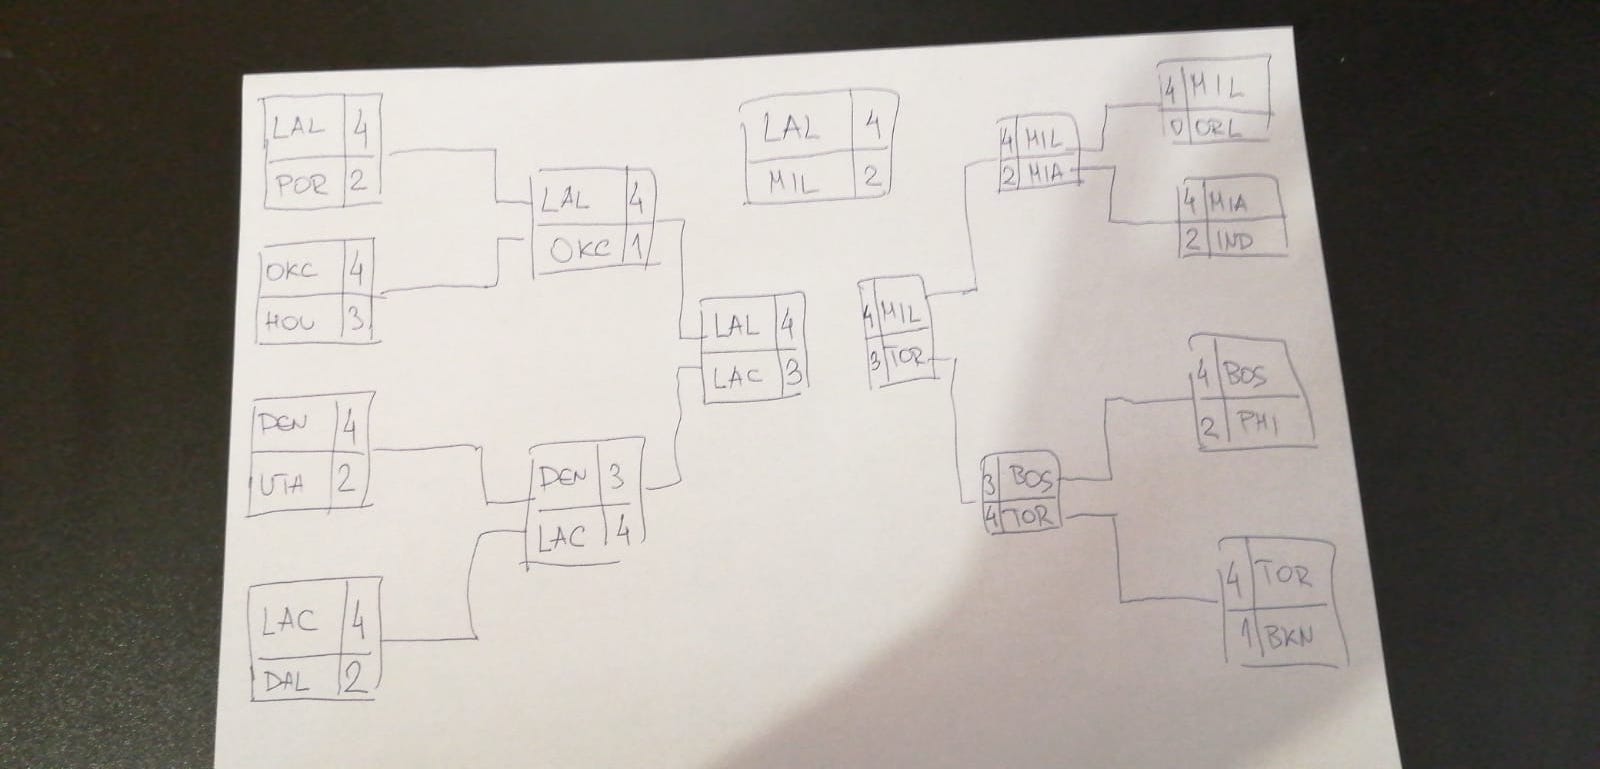 LAL 4
POR 2
OKC 4
HOU 3
DEN 4
UTA 2
LAC 4
DAL 2
LAL 4
OKC 1
DEN 3
LAC 4
LAL 4
LAC 3
LAL 4
MIL 2
4 MIL
3 TOR
4 MIL
2 MIA
3 BOS
4 TOR
4 MIL
0 ORL
4 MIA
2 IND
4 BOS
2 PHI
4 TOR
1 BKN